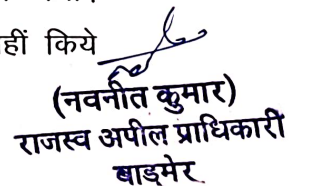 हीं किये
(नवनीत कुमार)
राजस्व अपील प्राधिकारी
बाड़मेर